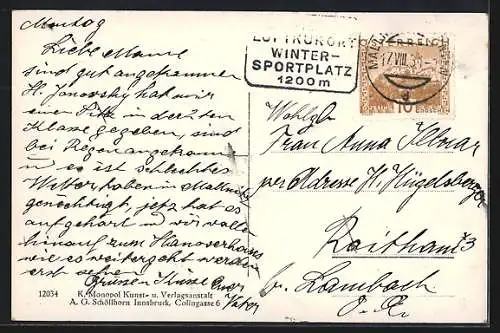 Montag
Liebe Mama
sind gut angekommen
H. Janovsky hat mir
einen Sitz in der 2ten
Klasse gegeben, sind
bei Regen angekommen
u. es ist schlechtes
Wetter haben in Mallnitz
genächtigt, jetzt hat es
aufgehört und wir wollen
hinauf zum Hanoverhaus
wie es weitergeht werden
erst sehen
Grüsse u Küsse Euer
Vater
12034 K. Monopol Kunst- u. Verlagsanstalt
A. G. Schöllhorn Innsbruck, Colingasse 6
LUFTKURORT
WINTER-
SPORTPLATZ
1200 m
ÖSTERREICH
VIII
10
Wohlgb
Frau Anna
per Adresse H. Hügelsberger
Raitham 3
b. Lambach
O. Ö.